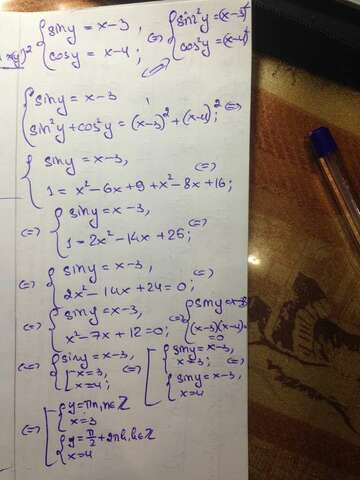 { sin y = x - 3, cos y = x - 4; <=> { sin²y = (x-3)² cos²y = (x-4)²
{ sin y = x - 3 ; sin²y + cos²y = (x-3)² + (x-4)²; <=>
{ sin y = x - 3, 1 = x² - 6x + 9 + x² - 8x + 16; <=>
<=> { sin y = x - 3, 1 = 2x² - 14x + 25; <=>
<=> { sin y = x - 3, 2x² - 14x + 24 = 0; <=>
<=> { sin y = x - 3, x² - 7x + 12 = 0; <=> { sin y = x - 3 (x-3)(x-4) = 0
<=> { sin y = x - 3, [ x = 3, x = 4; <=> [ { sin y = x - 3, x = 3; { sin y = x - 3, x = 4 <=>
<=> [ { y = πn, n∈Z x = 3 { y = π/2 + 2πk, k∈Z x = 4